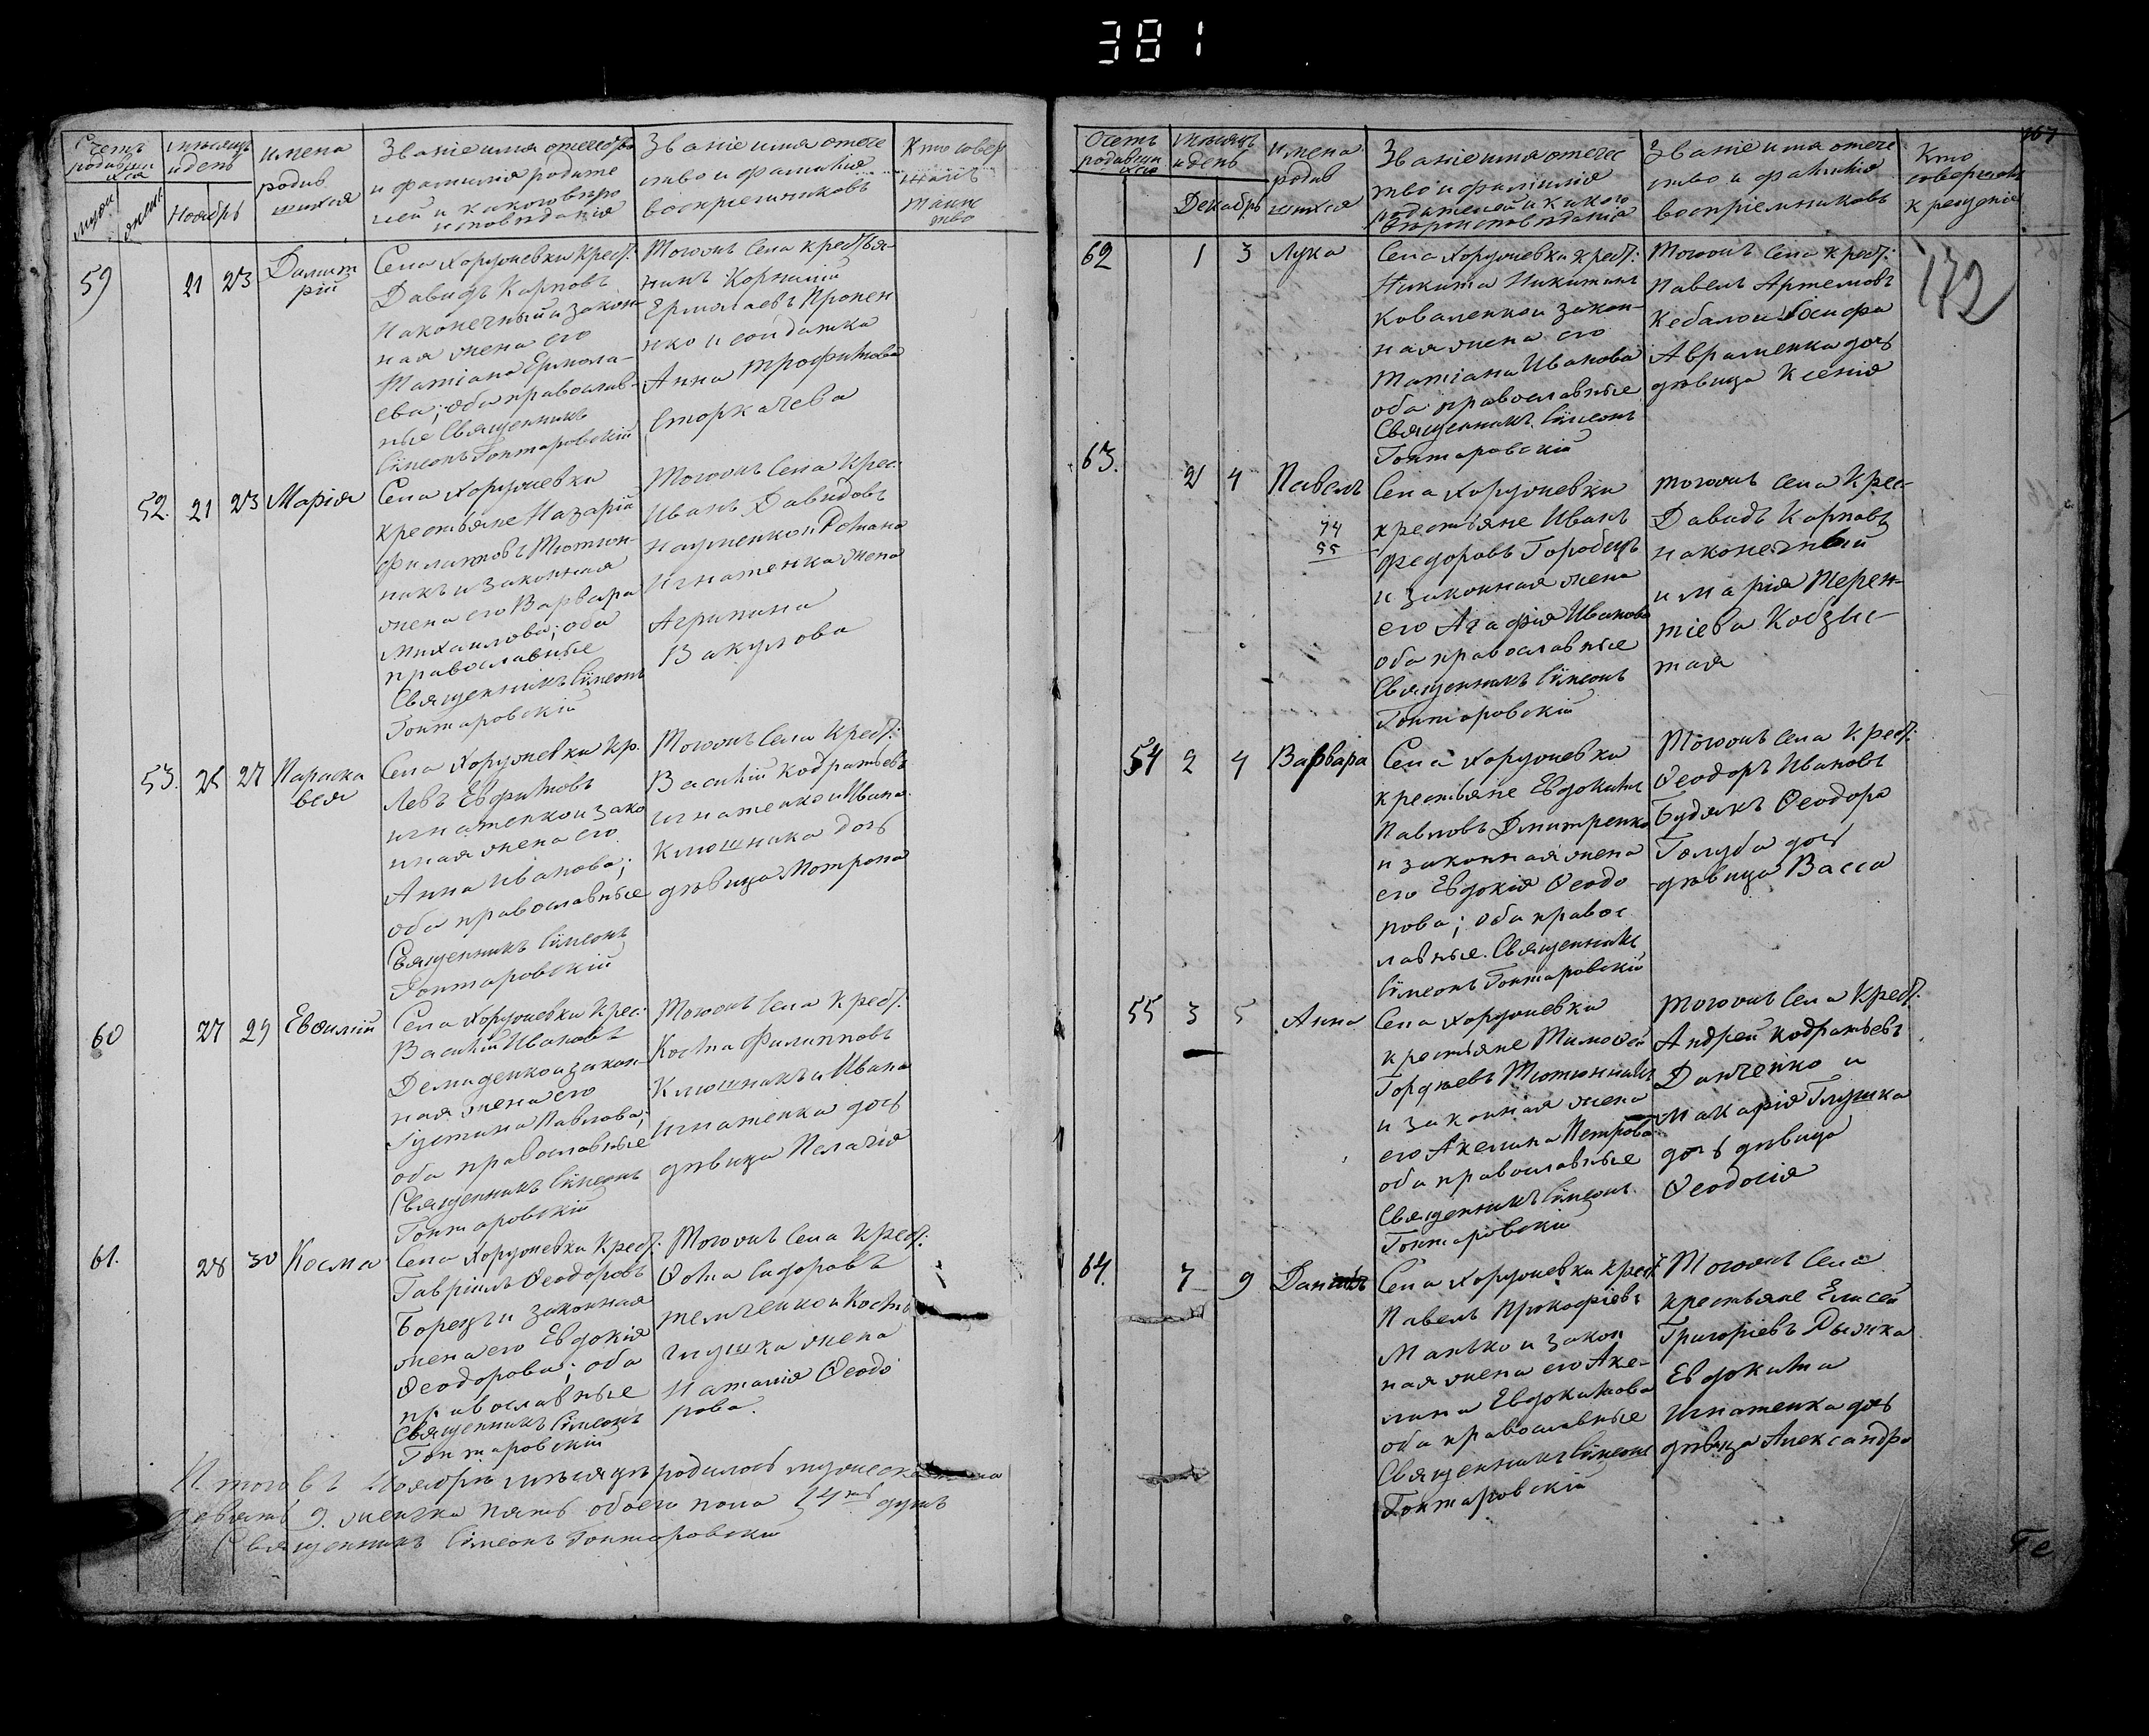 381
Счетъ родившихся
Мѣсяцъ и день
Имена родившихся
Званіе имя отечество
и фамилія родите
лей и какого вѣро
исповѣданія
Званіе имя отече
ство и фамилія
воспріемниковъ
Кто совер
шалъ
таин
ство
Ноябрь
59
21 23
Димит
рій
Села Хоружевки Крест:
Давидъ Карповъ
Наконечный и закон-
ная жена его
Татіана Ермола-
ева; оба православ-
ные Священникъ
Сѵмеонъ Гонтаровскій
Тогожъ Села крестья-
нинъ Корнилій
Ермолаевъ Пропен
нко и солдатка
Анна Трофимова
52. 21 23 Марія
Села Хоружевки
крестьяне Назарій
Филиповъ Тютюн-
никъ и законная
жена его Варвара
Михаилова; оба
православные
Священникъ Сѵмеонъ
Гонтаровскій
Тогожъ Села Крес:
Иванъ Давидовъ
Науменко и Романа
Игнатенка жена
Агрипина
Вакулова
53. 25 27 Параске
вея
Села Хоружевки Кр.
Левъ Евфимовъ
Игнатенко и зако
нная жена его
Анна Иванова;
оба православные
Священникъ Сѵмеонъ
Гонтаровскій
Тогожъ Села Крест:
Василій Кодратьевъ
Игнатенко и Ивана
Клюшника дочь
дѣвица Мотрона
60 27 29 Евѳимій
Села Хоружевки Крес:
Василій Ивановъ
Демиденко и закон-
ная жена его
Іустина Павлова;
оба православные
Священникъ Сѵмеонъ
Гонтаровскій
Тогожъ Села Крест:
Косма Филипповъ
Клюшникъ и Ивана
Игнатенка дочь
дѣвица Пелагія
61. 28 30 Косма
Села Хоружевки Крест:
Гавріилъ Ѳеодоровъ
Борецъ и законная
жена его Евдокія
Ѳеодорова; оба
православные
Священникъ Сѵмеонъ
Гонтаровскій
Тогожъ Села Крест:
Ѳома Сидоровъ
Темченко и Космы
Глушка жена
Наталія Ѳеодо
рова.
Итого въ Ноябрѣ мѣсяцѣ родилось мужеска пола
девять 9. женска пять обоего пола 14ть душъ
Священникъ Сѵмеонъ Гонтаровскій
167
Счетъ родившихся
Мѣсяцъ и день
Имена родившихся
Званіе имя отечес
тво и фамилія
родителей и какого
вѣроисповѣданія
Званіе имя отече
ство и фамилія
воспріемниковъ
Кто
совершалъ
крещеніе
Декабрь
172
62 1 3 Лука
Села Хоружевки крест:
Никита Никитинъ
Коваленко и закон-
ная жена его
Татіана Иванова
оба православные
Священникъ Сѵмеонъ
Гонтаровскій
Тогожъ Села крест:
Павелъ Артемовъ
Кебало и Іосифа
Авраменка дочь
дѣвица Ксенія
63. 2 4 Павелъ
Села Хоружевки
крестьяне Иванъ
Федоровъ Горобецъ
и законная жена
его Агафія Иванова
оба православные
Священникъ Сѵмеонъ
Гонтаровскій
Тогожъ Села Крес-
Давидъ Карповъ
Наконечный
и Марія Терен-
тіева
54 2 4 Варвара
Села Хоружевки
крестьяне Евдокимъ
Павловъ Дмитренко
и законная жена
его Евдокія Ѳеодо
рова; оба правос
лавные. Священникъ
Сѵмеонъ Гонтаровскій
Тогожъ Села Крест:
Ѳеодоръ Ивановъ
Будякъ Ѳеодора
Голуба дочь
дѣвица Васса
55 3 5 Анна
Села Хоружевки
крестьяне Тимоѳей
Гордѣевъ Тютюнникъ
и законная жена
его Акелина Петрова
оба православные
Священникъ Сѵмеонъ
Гонтаровскій
Тогожъ Села Крест:
Андрей Кодратьевъ
Данченко и
Макарія Глушка
дочь дѣвица
Ѳеодосія
64. 7 9 Даніилъ
Села Хоружевки Крест:
Павелъ Прокофіевъ
Манько и закон
ная жена его Аке-
лина Евдокимова
оба православные
Священникъ Сѵмеонъ
Гонтаровскій
Тогожъ Села
крестьяне Елисей
Григоріевъ Рыжка
Евдокима
Игнатенка дочь
дѣвица Александра